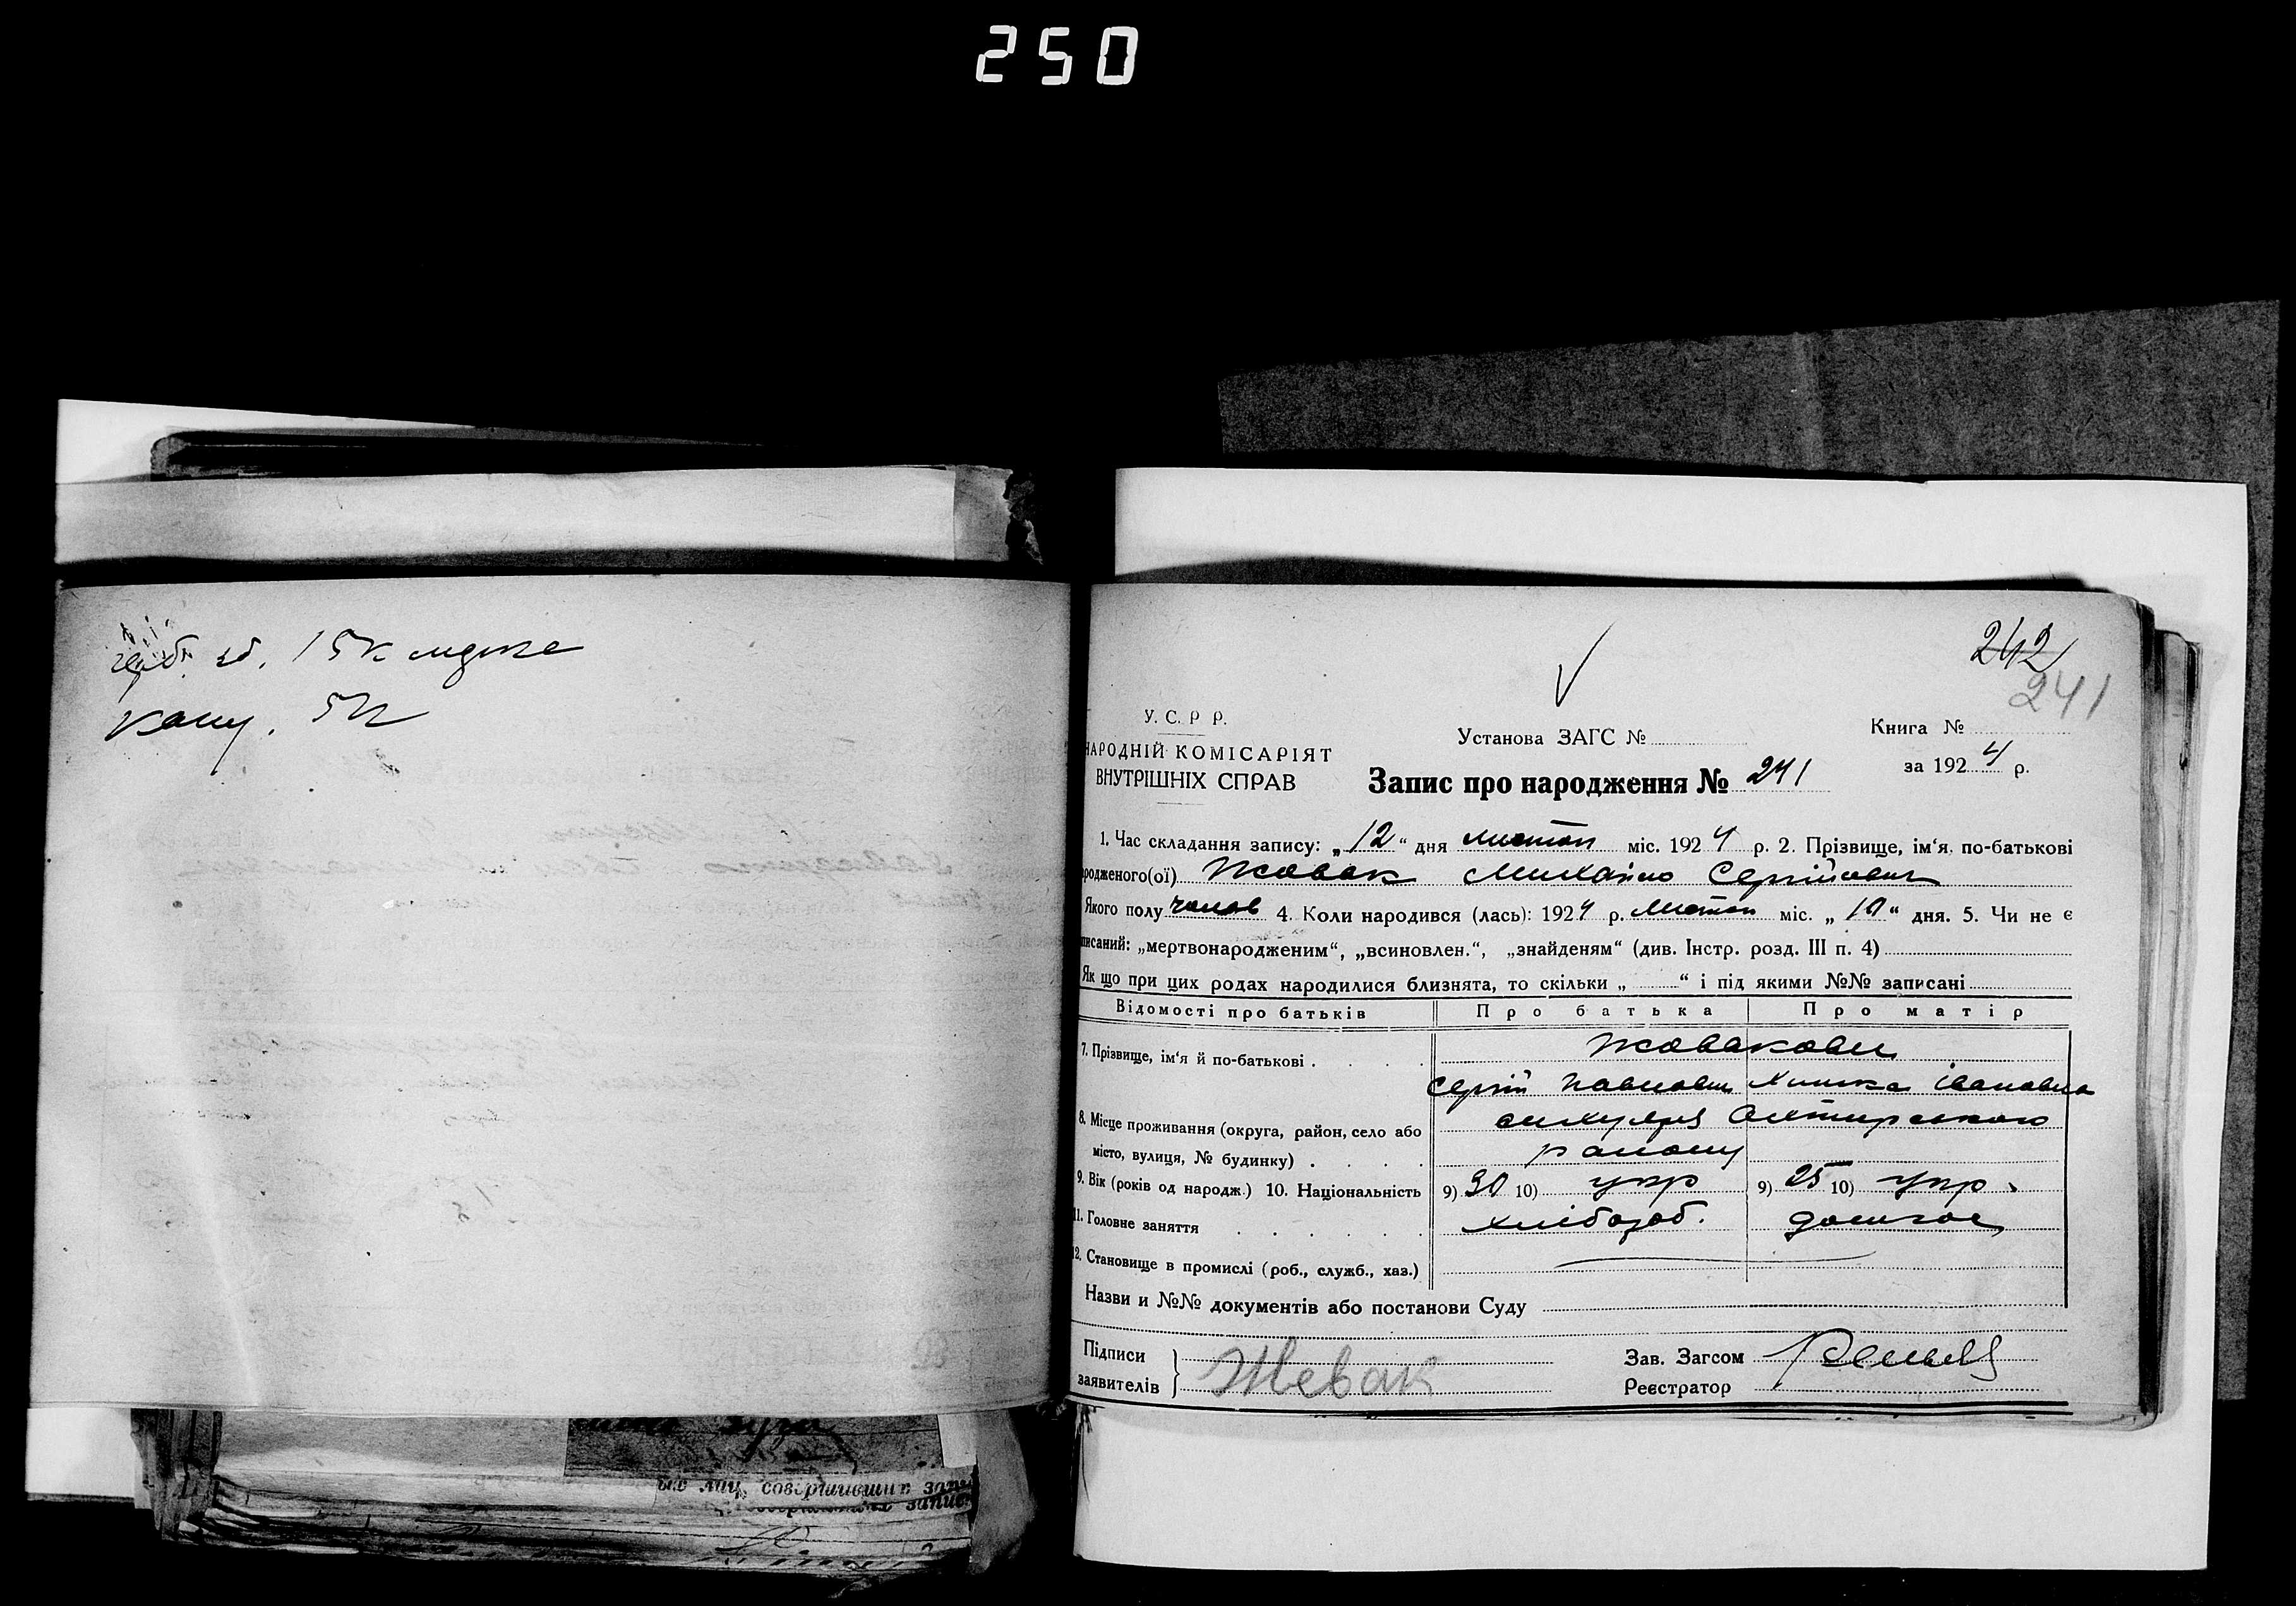 250
15к
кану. 5к
242
241
У. С. Р Р.
НАРОДНІЙ КОМІСАРІЯТ
ВНУТРІШНІХ СПРАВ
Установа ЗАГС №
Книга №
за 1924 р.
Запис про народження № 241
1. Час складання запису: „12“ дня листоп міс. 1924 р. 2. Прізвище, ім‘я, по-батькові
родженого(ої) Жовак Михайло Сергійович
Якого полу чолов 4. Коли народився (лась): 1924 р. листоп міс. „10“ дня. 5. Чи не є
писаний: „мертвонародженим“, „всиновлен.“, „знайденям“ (див. Інстр. розд. III п. 4)
Як що при цих родах народилися близнята, то скільки „ “ і під якими №№ записані
Відомості про батьків Про батька Про матір
7. Прізвище, ім‘я й по-батькові Жовакови
Сергій Павлович Химка Івановна
8. Місце проживання (округа, район, село або Охтирського
місто, вулиця, № будинку) району
9. Вік (років од народж.) 10. Національність 9) 30 10) укр 9) 25 10) укр.
11. Головне заняття хлібороб. домгос
12. Становище в промислі (роб., служб., хаз.)
Назви и №№ документів або постанови Суду
Підписи
заявителів
Жевак
Зав. Загсом
Реєстратор
ых лиц, совершивших запи